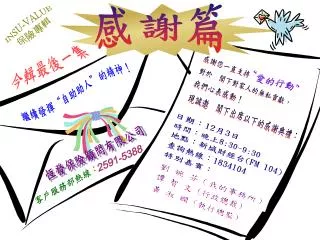 INSU-VALUE
保險專輯
感謝篇
今輯最後一集
繼續發揮“自助助人”的精神！
恆發保險顧問有限公司
客戶服務部熱線：2591-5388
感謝您一直支持“愛的行動”
對於 閣下對家人的無私奉獻，
我們心表感動！
現誠邀 閣下出席以下的感謝典禮：
日期：12月3日
時間：晚上8:30-9:30
地點：新城財經台(FM 104)
查詢熱線：1834104
特別嘉賓：
劉 婉 芬 (氏的事務所)
譚 智 文 (行政總裁)
黃 淑 嫻 (執行總監)